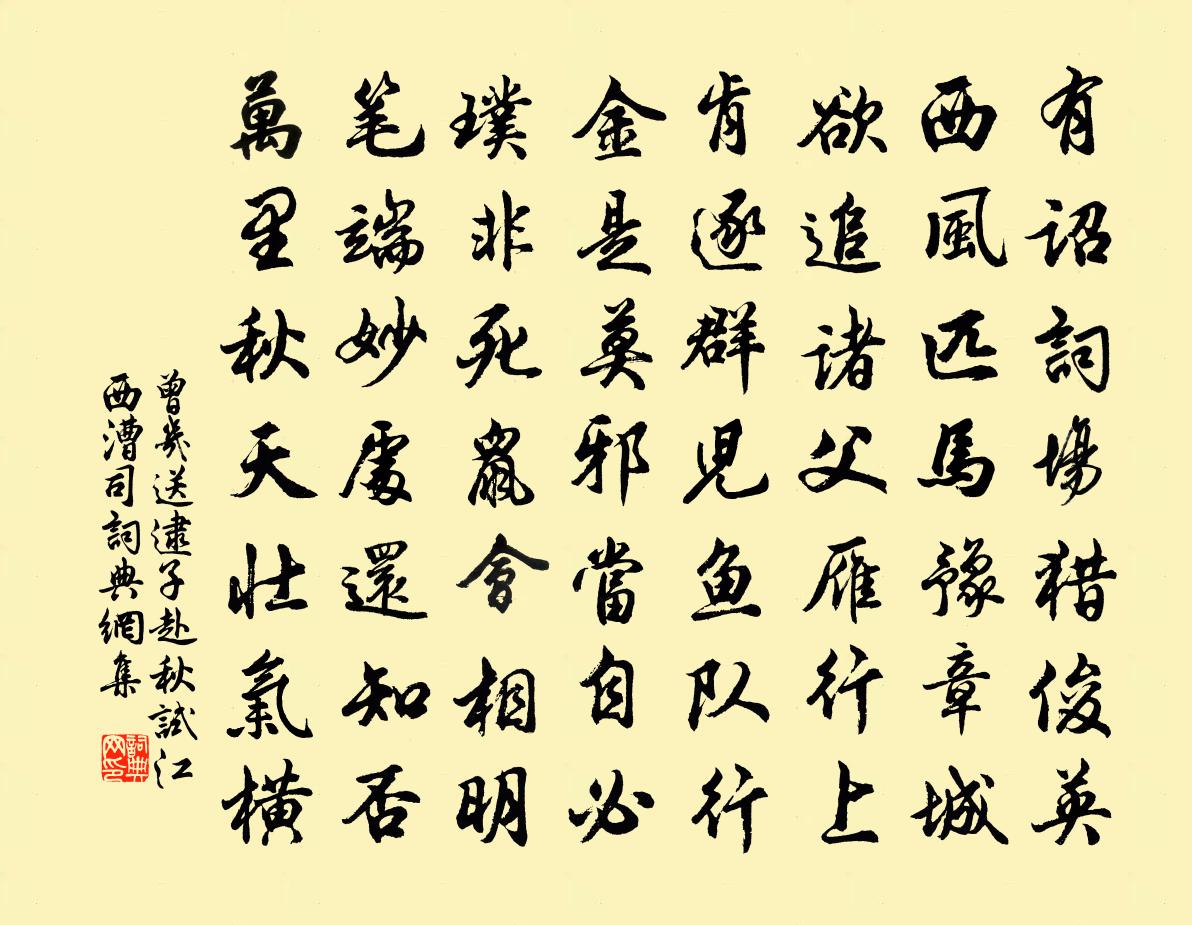 有詔詞場猎俊英
西風匹馬豫章城
欲追诸父雁行上
肯逐群児鱼队行
金是莫邪當自必
璞非死鼠會相明
笔端妙處還知否
萬里秋天壮氣橫
曾幾送逮子赴秋試江
西漕司詞典網集
詞典
网印